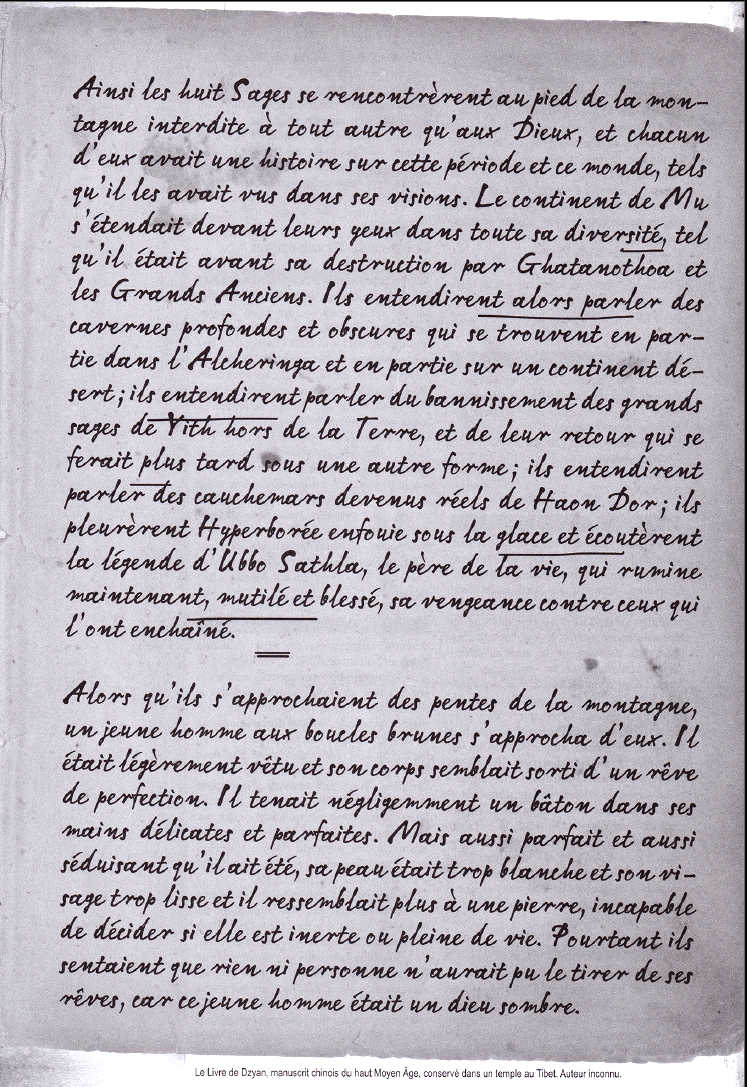 Ainsi les huit Sages se rencontrèrent au pied de la mon-
tagne interdite à tout autre qu'aux Dieux, et chacun
d'eux avait une histoire sur cette période et ce monde, tels
qu'il les avait vus dans ses visions. Le continent de Mu
s'étendait devant leurs yeux dans toute sa diversité, tel
qu'il était avant sa destruction par Ghatanothoa et
les Grands Anciens. Ils entendirent alors parler des
cavernes profondes et obscures qui se trouvent en par-
tie dans l'Alcheringa et en partie sur un continent dé-
sert ; ils entendirent parler du bannissement des grands
sages de Yith hors de la Terre, et de leur retour qui se
ferait plus tard sous une autre forme ; ils entendirent
parler des cauchemars devenus réels de Haon Dor ; ils
pleurèrent Hyperborée enfouie sous la glace et écoutèrent
la légende d'Ubbo Sathla, le père de la vie, qui rumine
maintenant, mutilé et blessé, sa vengeance contre ceux qui
l'ont enchaîné.
Alors qu'ils s'approchaient des pentes de la montagne,
un jeune homme aux boucles brunes s'approcha d'eux. Il
était légèrement vêtu et son corps semblait sorti d'un rêve
de perfection. Il tenait négligemment un bâton dans ses
mains délicates et parfaites. Mais aussi parfait et aussi
séduisant qu'il ait été, sa peau était trop blanche et son vi-
sage trop lisse et il ressemblait plus à une pierre, incapable
de décider si elle est inerte ou pleine de vie. Pourtant ils
sentaient que rien ni personne n'aurait pu le tirer de ses
rêves, car ce jeune homme était un dieu sombre.
Le Livre de Dzyan, manuscrit chinois du haut Moyen Âge, conservé dans un temple au Tibet. Auteur inconnu.